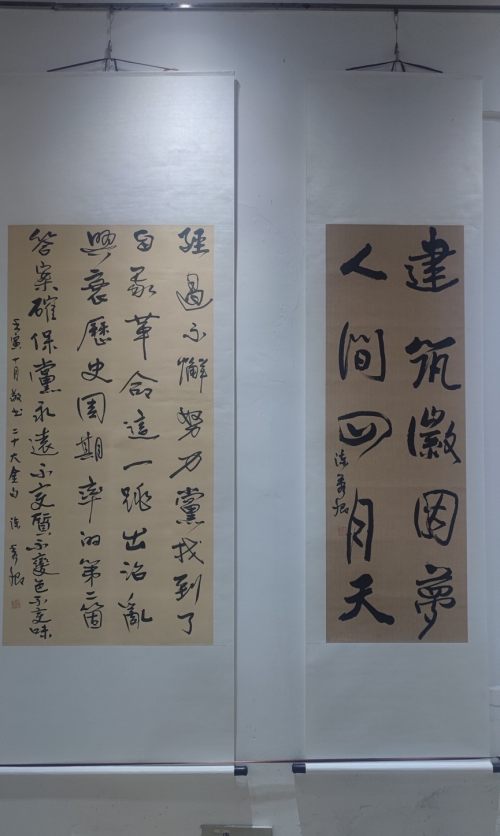 建筑徽因夢
人間四月天
經過不懈努力黨找到了
自我革命這一跳出治亂
興衰歷史周期率的第二箇
答案確保黨永遠不变質不變色不变味
壬寅十月敬书二十大金句